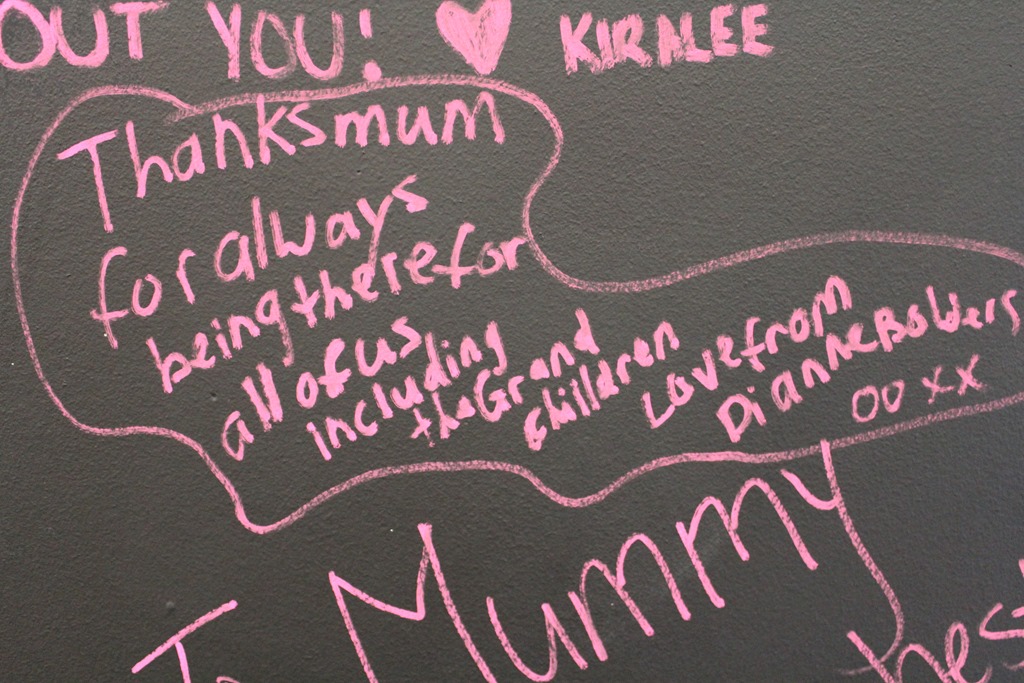 OUT YOU! ♥ KIRALEE
Thanks mum
for always
being there for
all of us
including
the Grand
chilldren
Love from
Dianne Bolders
OO XX
To Mummy